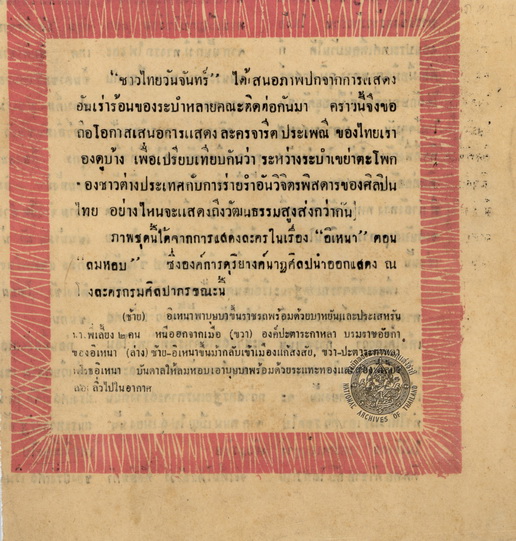 “ชาวไทยวันจันทร์” ได้เสนอภาพปกจากการแสดง
อันเร่าร้อนของระบำหลายคณะติดต่อกันมา คราวนี้จึงขอ
ถือโอกาสเสนอการแสดง ละครจารีต ประเพณี ของไทยเรา
องดูบ้าง เพื่อเปรียบเทียบกันว่า ระหว่างระบำเขย่าตะโพก
องชาวต่างประเทศกับการร่ายรำอันวิจิตรพิสดารของศิลปิน
ไทย อย่างไหนจะแสดงถึงวัฒนธรรมสูงส่งกว่ากัน
ภาพชุดนี้ได้จากการแสดงละครในเรื่อง “อิเหนา” ตอน
“ลมหอบ” ซึ่งองค์การดุริยางค์นาฏศิลปนำออกแสดง ณ
โรงละครกรมศิลปากรขณะนี้
(ซ้าย) อิเหนาพาบุษบาขึ้นราชรถพร้อมด้วยบาหยันและประเสหรัน
พี่เลี้ยง ๒ คน หนีออกจากเมือง (ขวา) องค์ปะตาระกาหลา บรมราชอัยกา
ของอิเหนา (ล่าง) ซ้าย-อิเหนาขึ้นม้ากลับเข้าเมืองแก้สงสัย, ขวา-ปะตาระกาหลา
บันดาลให้ลมหอบเอาบุษบาพร้อมด้วยราชรถและสอง
ลิ่วไปในอากาศ
NATIONAL ARCHIVES OF THAILAND